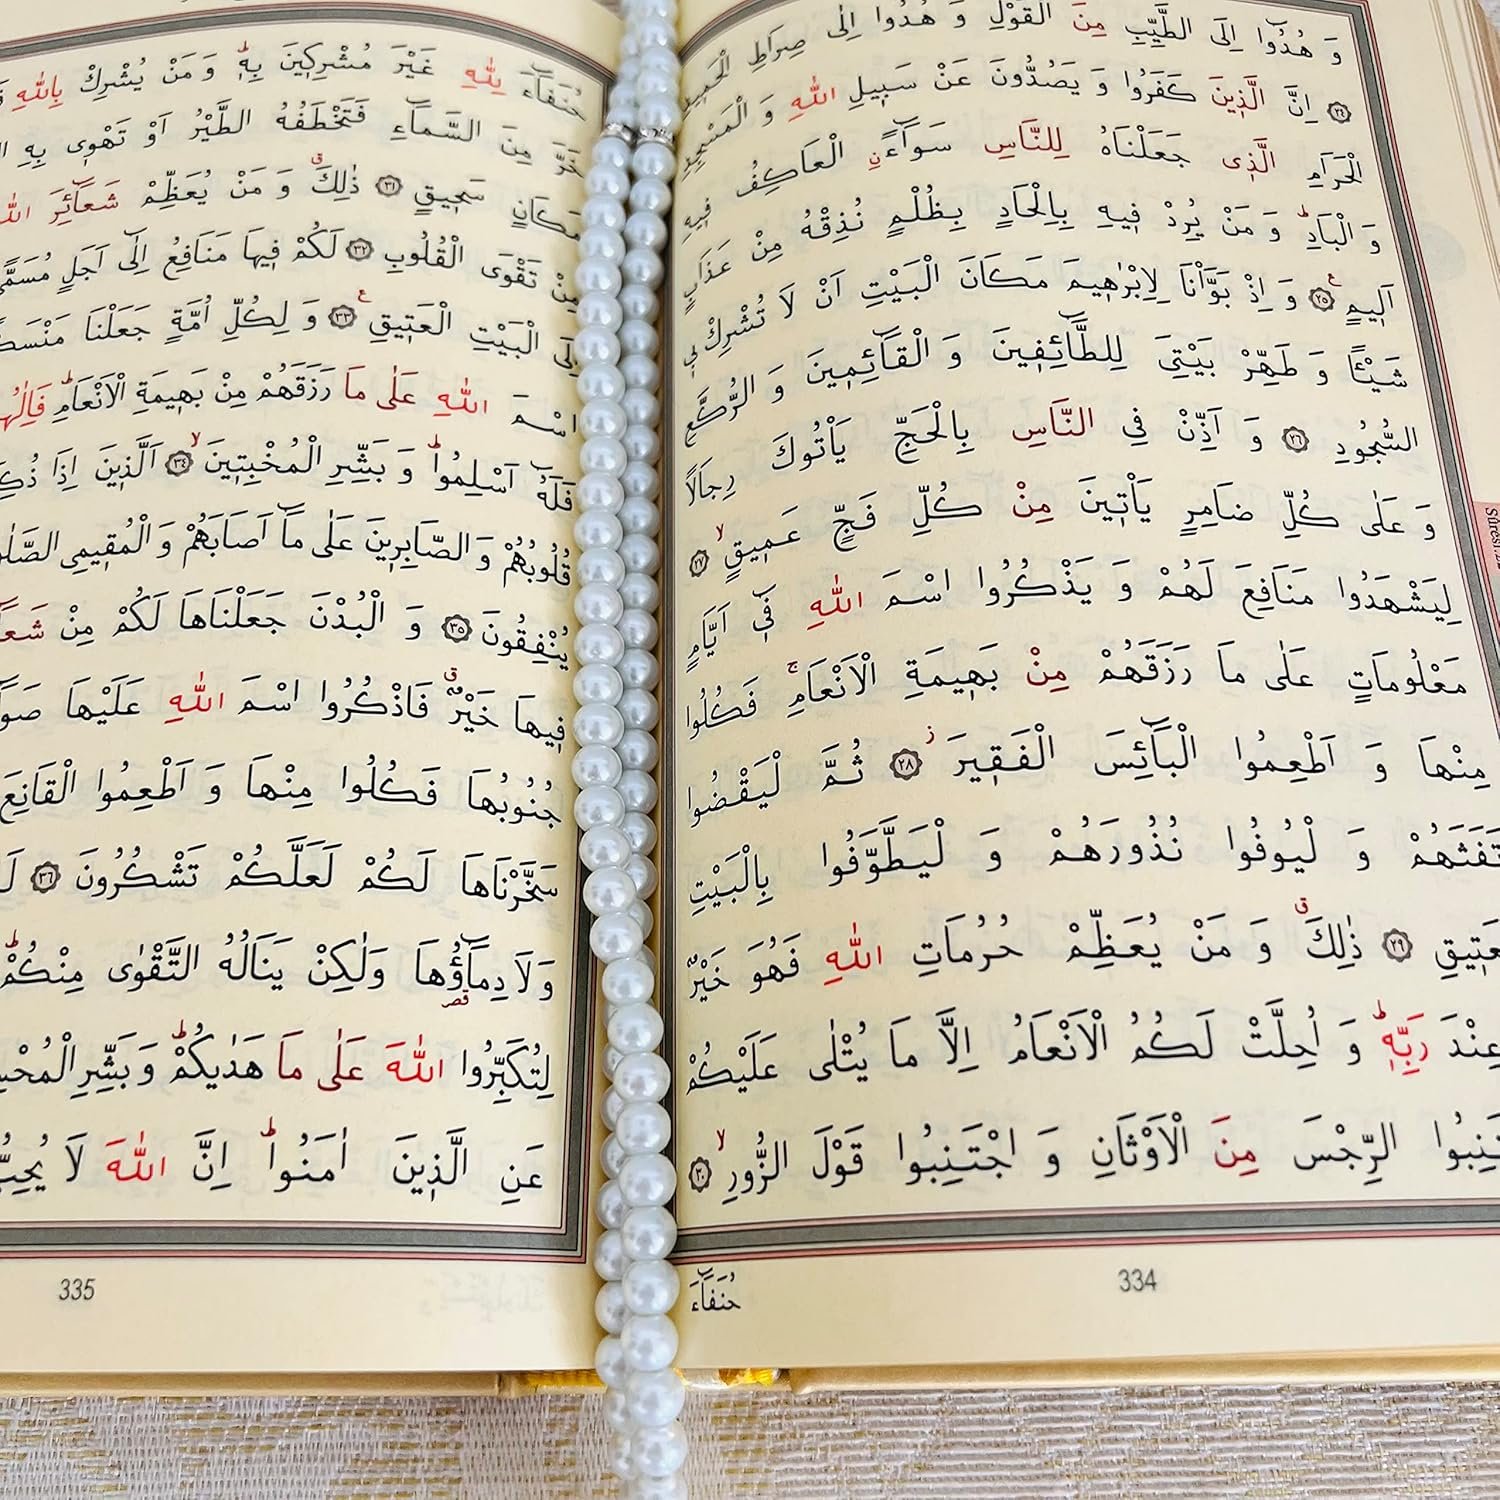 وَ هُدُوا اِلَى الطَّيِّبِ مِنَ الْقَوْلِ وَ هُدُوا اِلٰى صِرَاطِ الْحَمٖيدِ
﴿٢٤﴾ اِنَّ الَّذٖينَ كَفَرُوا وَ يَصُدُّونَ عَنْ سَبٖيلِ اللّٰهِ وَ الْمَسْجِدِ
الْحَرَامِ الَّذٖى جَعَلْنَاهُ لِلنَّاسِ سَوَٓاءًۨ الْعَاكِفُ فٖيهِ
وَ الْبَادِؕ وَ مَنْ يُرِدْ فٖيهِ بِاِلْحَادٍ بِظُلْمٍ نُذِقْهُ مِنْ عَذَابٍ
اَلٖيمٍ ﴿٢٥﴾ وَ اِذْ بَوَّاْنَا لِاِبْرٰهٖيمَ مَكَانَ الْبَيْتِ اَنْ لَا تُشْرِكْ بٖى
شَيْـًٔا وَ طَهِّرْ بَيْتِىَ لِلطَّٓائِفٖينَ وَ الْقَٓائِمٖينَ وَ الرُّكَّعِ
السُّجُودِ ﴿٢٦﴾ وَ اَذِّنْ فِى النَّاسِ بِالْحَجِّ يَاْتُوكَ رِجَالًا
وَ عَلٰى كُلِّ ضَامِرٍ يَاْتٖينَ مِنْ كُلِّ فَجٍّ عَمٖيقٍۙ ﴿٢٧﴾
لِيَشْهَدُوا مَنَافِعَ لَهُمْ وَ يَذْكُرُوا اسْمَ اللّٰهِ فٖٓى اَيَّامٍ
مَعْلُومَاتٍ عَلٰى مَا رَزَقَهُمْ مِنْ بَهٖيمَةِ الْاَنْعَامِۚ فَكُلُوا
مِنْهَا وَ اَطْعِمُوا الْبَٓائِسَ الْفَقٖيرَؗ ﴿٢٨﴾ ثُمَّ لْيَقْضُوا
تَفَثَهُمْ وَ لْيُوفُوا نُذُورَهُمْ وَ لْيَطَّوَّفُوا بِالْبَيْتِ
الْعَتٖيقِ ﴿٢٩﴾ ذٰلِكَۗ وَ مَنْ يُعَظِّمْ حُرُمَاتِ اللّٰهِ فَهُوَ خَيْرٌ
عِنْدَ رَبِّهٖؕ وَ اُحِلَّتْ لَكُمُ الْاَنْعَامُ اِلَّا مَا يُتْلٰى عَلَيْكُمْ
الرِّجْسَ مِنَ الْاَوْثَانِ وَ اجْتَنِبُوا قَوْلَ الزُّورِۙ ﴿٣٠﴾
حُنَفَٓاءَ
334
حُنَفَٓاءَ لِلّٰهِ غَيْرَ مُشْرِكٖينَ بِهٖؕ وَ مَنْ يُشْرِكْ بِاللّٰهِ
خَرَّ مِنَ السَّمَٓاءِ فَتَخْطَفُهُ الطَّيْرُ اَوْ تَهْوٖى بِهِ
مَكَانٍ سَحٖيقٍ ﴿٣١﴾ ذٰلِكَۗ وَ مَنْ يُعَظِّمْ شَعَٓائِرَ اللّٰهِ
مِنْ تَقْوَى الْقُلُوبِ ﴿٣٢﴾ لَكُمْ فٖيهَا مَنَافِعُ اِلٰٓى اَجَلٍ مُسَمًّى
اِلَى الْبَيْتِ الْعَتٖيقِ ﴿٣٣﴾ وَ لِكُلِّ اُمَّةٍ جَعَلْنَا مَنْسَكًا
اسْمَ اللّٰهِ عَلٰى مَا رَزَقَهُمْ مِنْ بَهٖيمَةِ الْاَنْعَامِؕ فَاِلٰهُكُمْ
فَلَهُٓ اَسْلِمُواؕ وَ بَشِّرِ الْمُخْبِتٖينَۙ ﴿٣٤﴾ اَلَّذٖينَ اِذَا ذُكِرَ
قُلُوبُهُمْ وَ الصَّابِرٖينَ عَلٰى مَٓا اَصَابَهُمْ وَ الْمُقٖيمِى الصَّلٰوةِ
يُنْفِقُونَ ﴿٣٥﴾ وَ الْبُدْنَ جَعَلْنَاهَا لَكُمْ مِنْ شَعَٓائِرِ
فٖيهَا خَيْرٌۗ فَاذْكُرُوا اسْمَ اللّٰهِ عَلَيْهَا صَوَٓافَّ
جُنُوبُهَا فَكُلُوا مِنْهَا وَ اَطْعِمُوا الْقَانِعَ
سَخَّرْنَاهَا لَكُمْ لَعَلَّكُمْ تَشْكُرُونَ ﴿٣٦﴾
وَلَا دِمَٓاؤُ۬هَا وَلٰكِنْ يَنَالُهُ التَّقْوٰى مِنْكُمْؕ
لِتُكَبِّرُوا اللّٰهَ عَلٰى مَا هَدٰيكُمْؕ وَ بَشِّرِ الْمُحْسِنٖينَ
عَنِ الَّذٖينَ اٰمَنُواؕ اِنَّ اللّٰهَ لَا يُحِبُّ
335